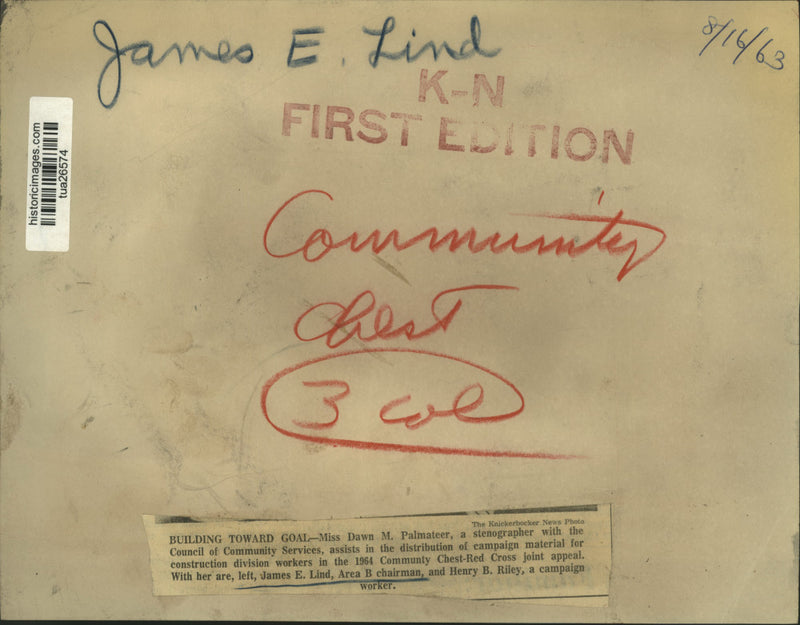 James E. Lind
8/16/63
K-N
FIRST EDITION
historicimages.com
tua26574
Community
Chest
3 col
The Knickerbocker News Photo
BUILDING TOWARD GOAL—Miss Dawn M. Palmateer, a stenographer with the
Council of Community Services, assists in the distribution of campaign material for
construction division workers in the 1964 Community Chest-Red Cross joint appeal.
With her are, left, James E. Lind, Area B chairman, and Henry B. Riley, a campaign
worker.